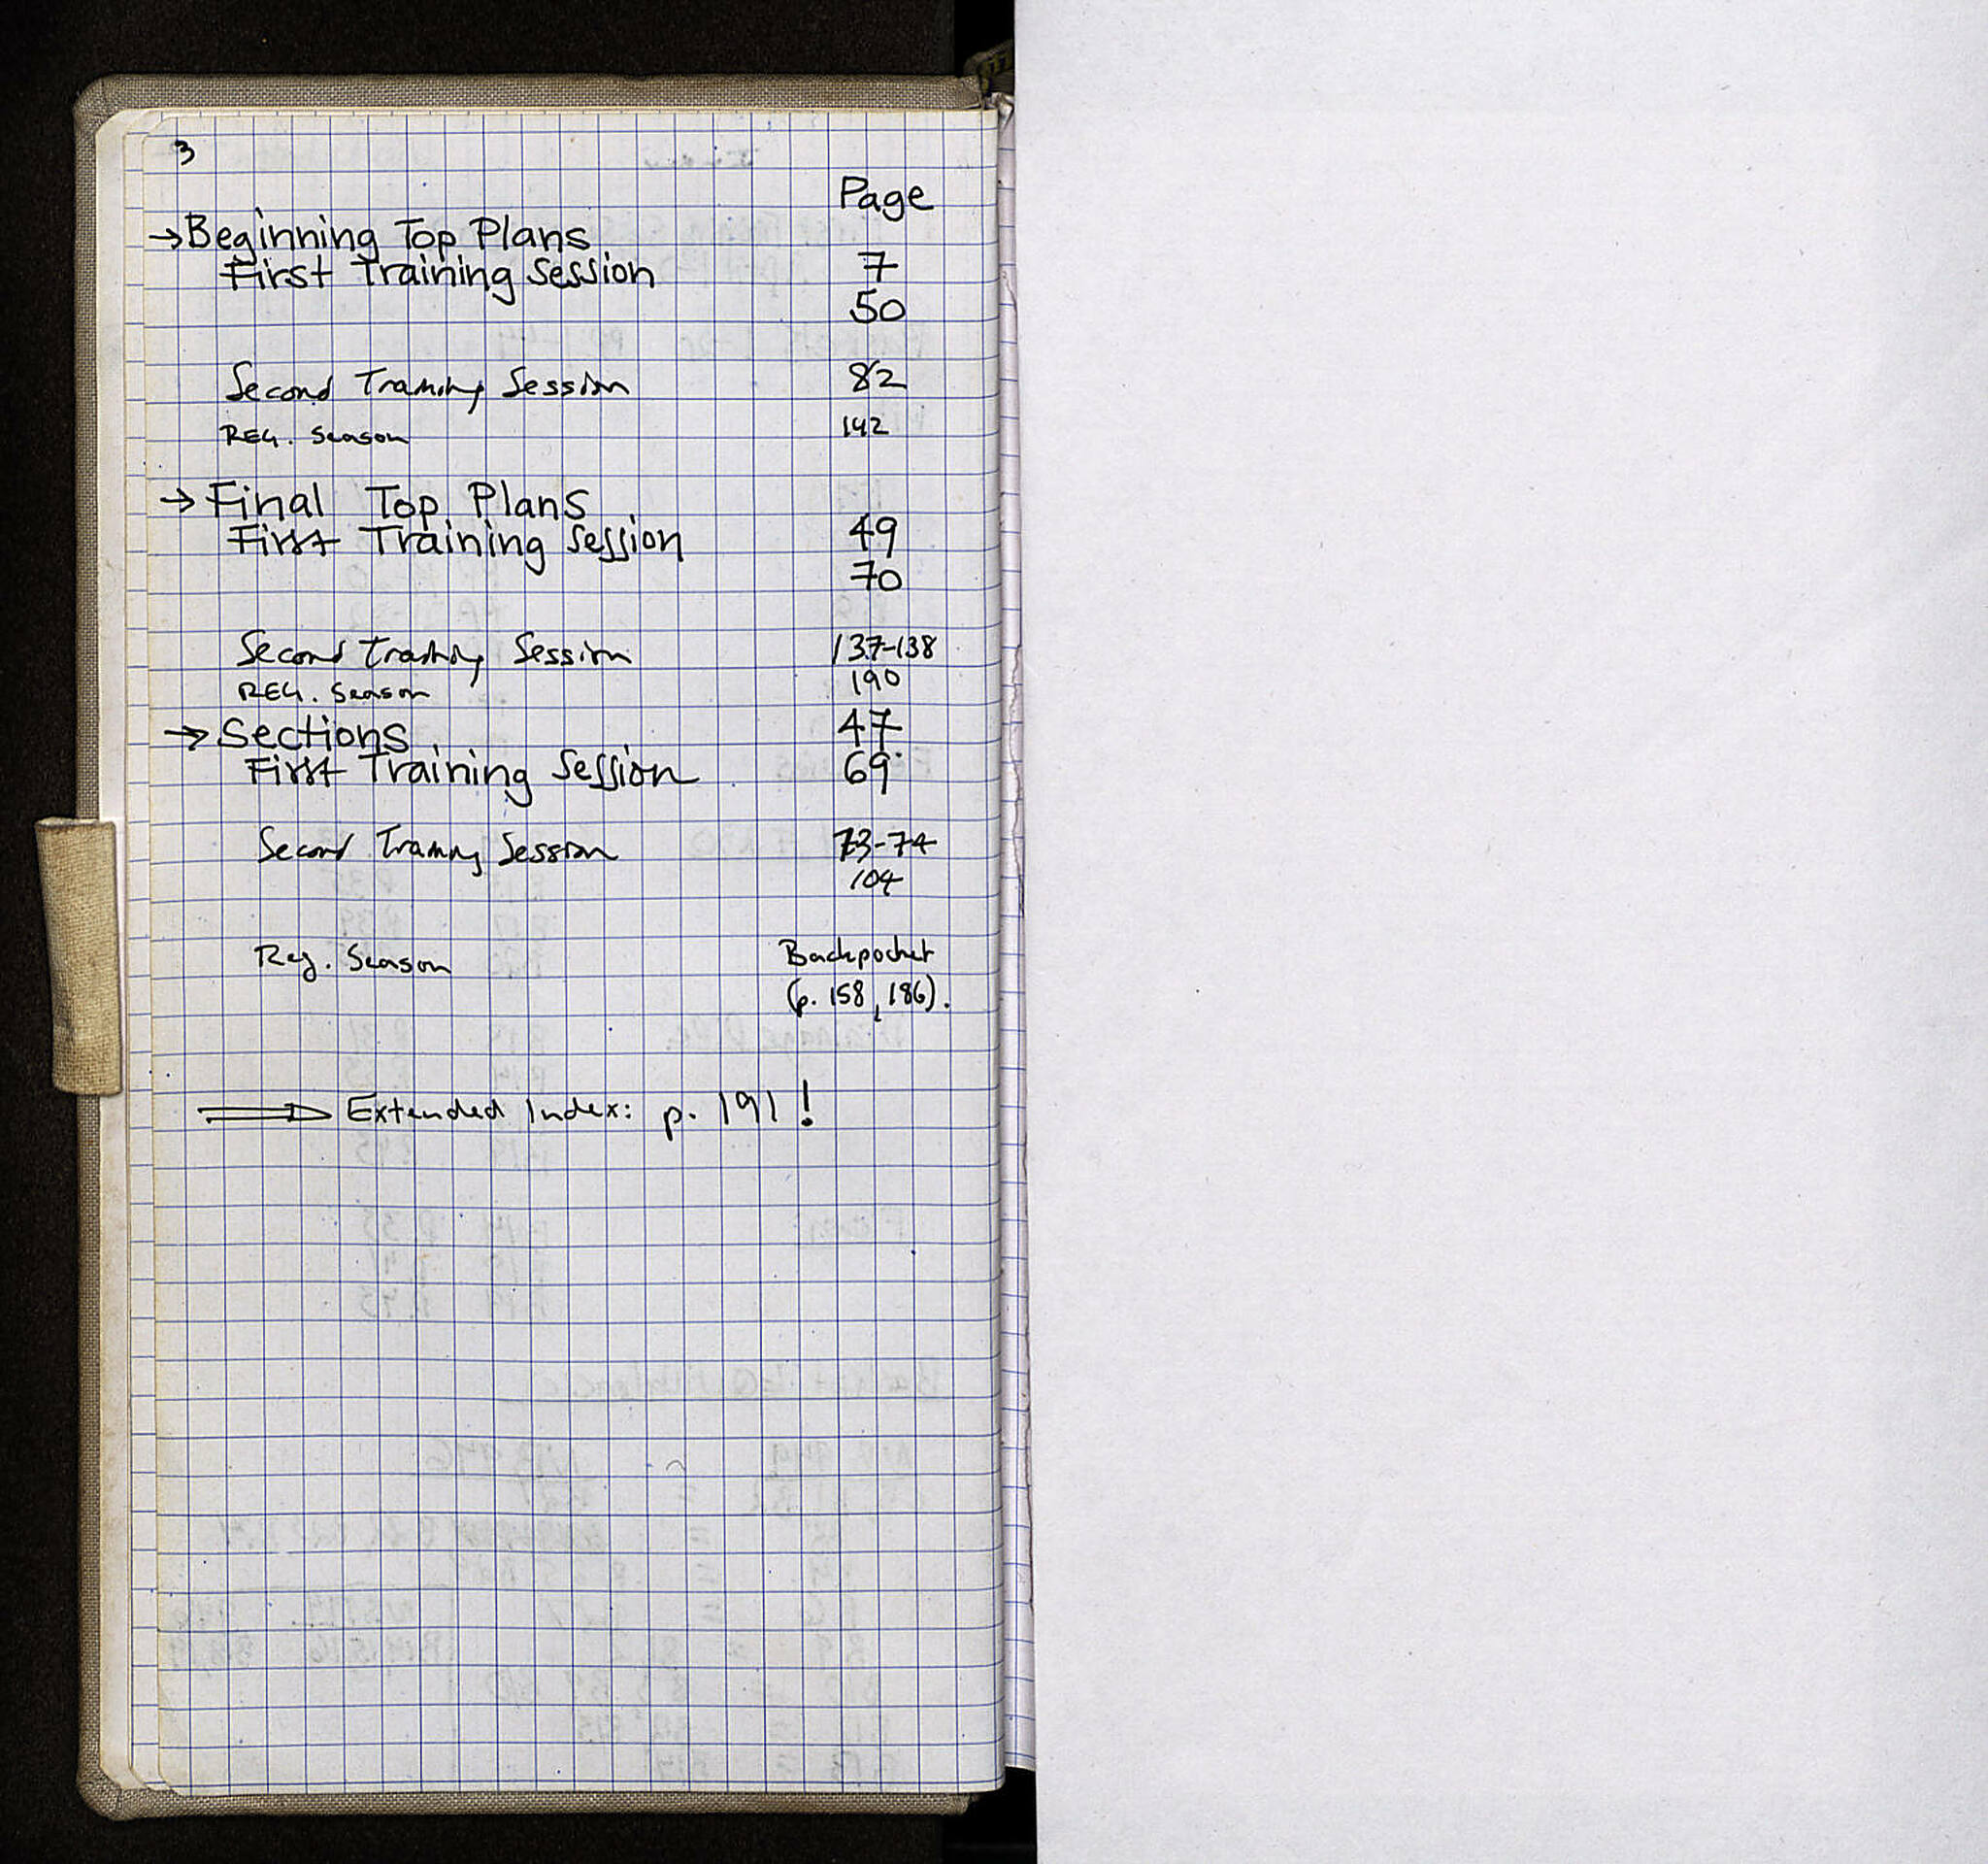 3
Page
→Beginning Top Plans
First Training Session 7
50
Second Training Session 82
REG. Season 142
→ Final Top Plans
First Training Session 49
70
Second Training Session 137-138
REG. Season 190
→ Sections 47
First Training Session 69
Second Training Session 73-74
104
Reg. Season Backpocket
(p. 158, 186).
⇒ Extended Index: p. 191!